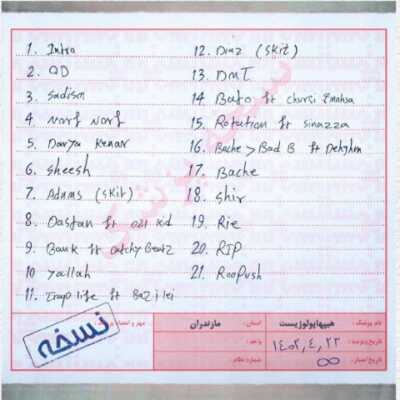 1. Intro
2. OD
3. Sadism
4. Norf Norf
5. Darya Kenar
6. Sheesh
7. Adams (Skit)
8. Dastan ft 021 kid
9. Bank ft Catchy Beatz
10 Yallah
11. Trap life ft Sajilei
12. Diaz (Skit)
13. DMT
14 Bato ft Chvrsi Emahsa
15. Rotation ft Sinazza
16. Bache > Bad B ft
17. Bache
18. Shir
19. Rie
20. RIP
21. Roopush
نسخه
نام پزشک: هیپهاپولوژیست
استان: مازندران
مهر و امضاء
تاریخ ویزیت: ۱۴۰۲,۴,۲۳
واحد:
تاریخ اعتبار: ∞
شماره نظام: